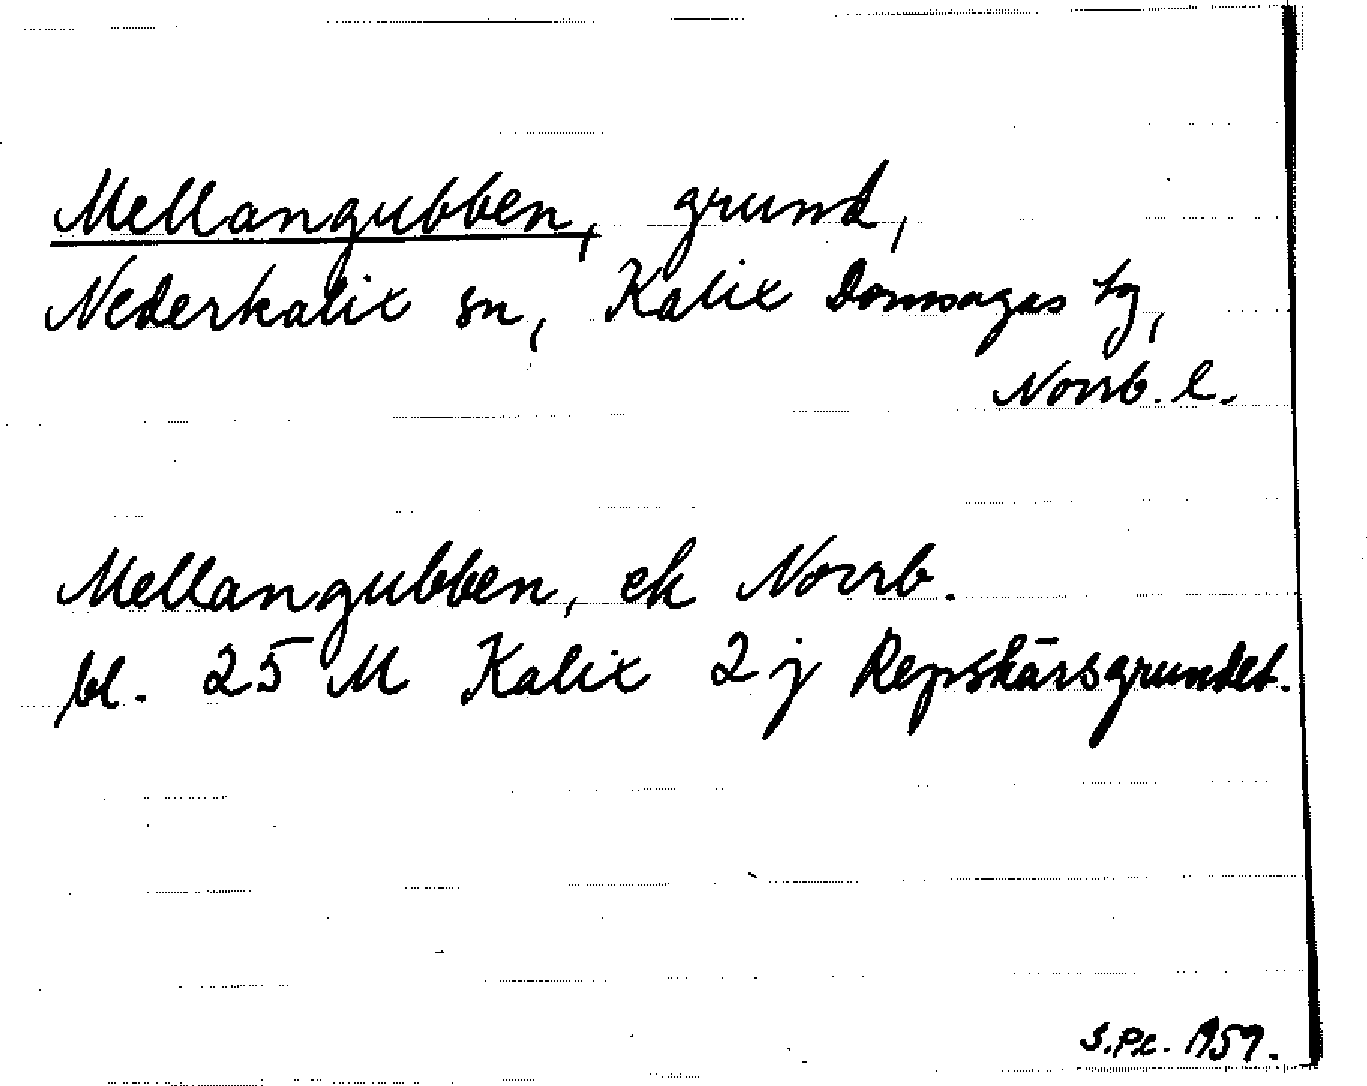 Mellangubben, grund,
Nederkalix sn, Kalix Domsagas tg,
Norrb. l.
Mellangubben, ek Norrb.
bl. 25 M Kalix 2 j Repskärsgrundet.
1959.